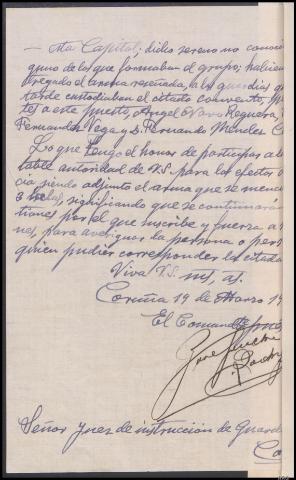 — sta Capital; dicho sereno no conoció
guno de los que formaban el grupo; habien
tregado el arma reseñada, a los guardias q
tarde custodiaban el citado convento,
tes a este puesto, Angel Vavo Reguera,
Fernandez Vega y D. Fernando Mendez C
Lo que tengo el honor de participar a la
table autoridad de V.S. para los efectos o
cia siendo adjunto el arma que se menc
significando que se continuarán
tiones por el que suscribe y fuerza a
nes, para averiguar la persona o pers
quien pudier corresponder la citada
Viva V.S. ms, as.
Coruña 19 de Marzo 19
El Comandte
Señor Juez de instrucción de Guard
Co